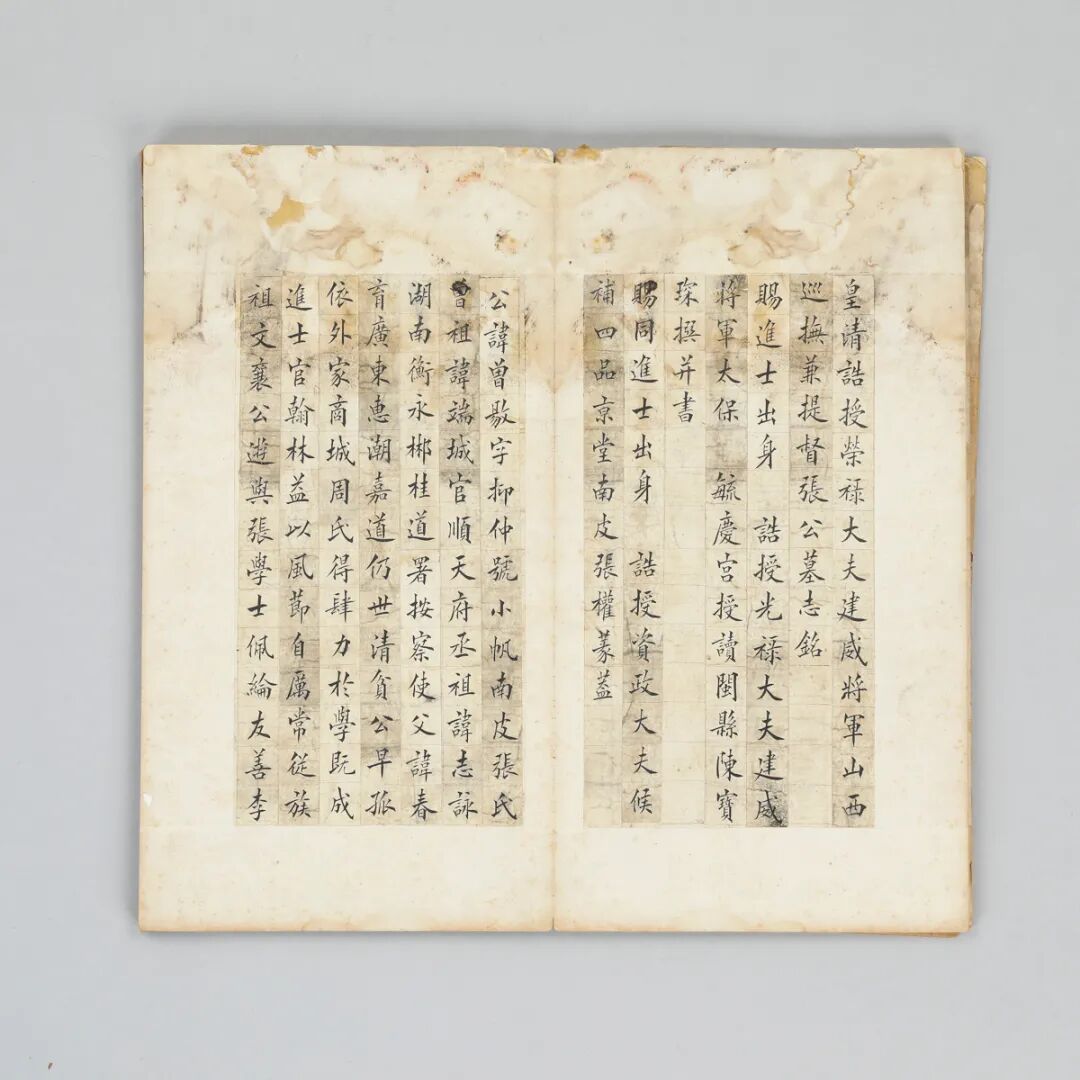 皇清誥授榮祿大夫建威將軍山西
巡撫兼提督張公墓志銘
賜進士出身 誥授光祿大夫建威
將軍太保 毓慶宮授讀閩縣陳寶
琛撰并書
賜同進士出身 誥授資政大夫候
補四品京堂南皮張權篆蓋
公諱曾敭字抑仲號小帆南皮張氏
曾祖諱端城官順天府丞祖諱志詠
湖南衡永郴桂道署按察使父諱春
育廣東惠潮嘉道仍世清貧公早孤
依外家商城周氏得肆力於學既成
進士官翰林益以風節自厲常從族
祖文襄公遊與張學士佩綸友善李